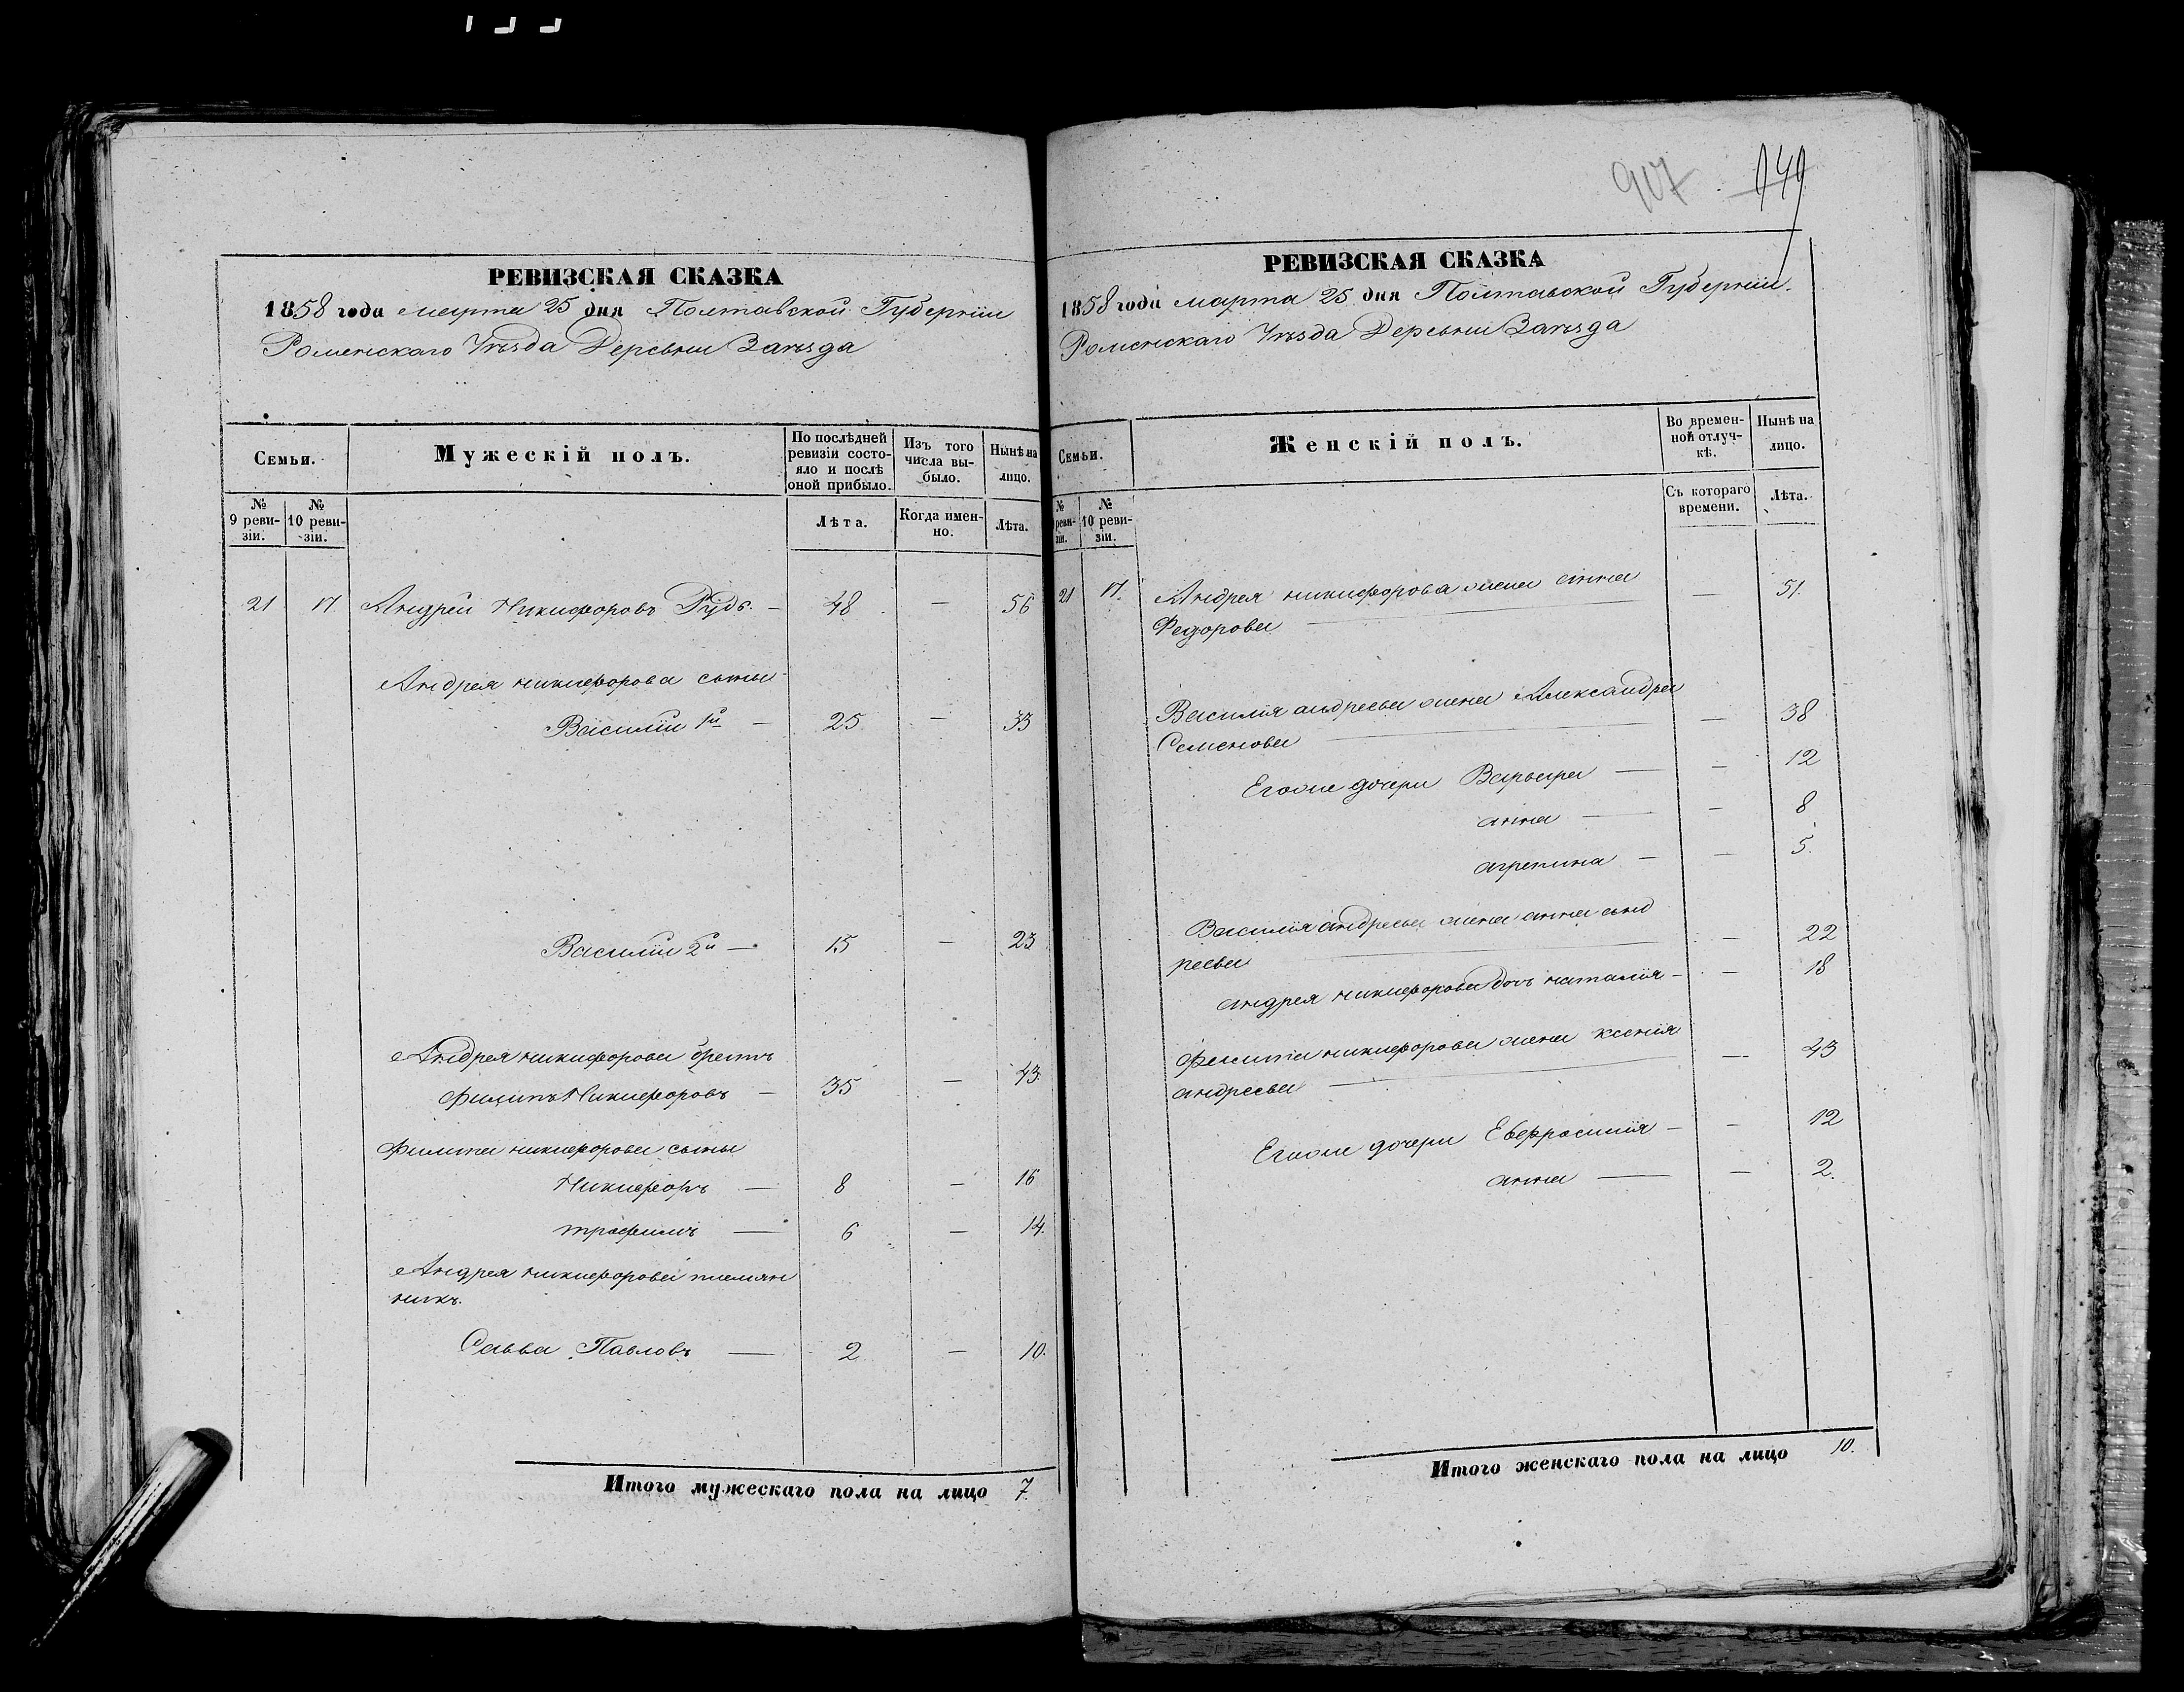 РЕВИЗСКАЯ СКАЗКА
1858 года марта 25 дня Полтавской Губернии
Роменскаго Уѣзда Деревни Заѣзда
Семьи.
Мужескій полъ.
По послѣдней ревизіи состояло и послѣ оной прибыло.
Изъ того числа выбыло.
Нынѣ на лицо.
№ 9 ревизіи.
№ 10 ревизіи.
Лѣта.
Когда именно.
Лѣта.
21 17. Андрей Никифоровъ Рудь. — 48 — 56
Андрея никифорова сыны
Василій 1й — 25 — 33
Василій 2й — 15 — 23
Андрея никифорова братъ
Филипъ Никифоровъ — 35 — 43.
Филипа никифорова сыны
Никифоръ — 8 — 16
трофимъ — 6 — 14.
Андрея никифорова племян
никъ.
Савва Павловъ — 2 — 10.
Итого мужескаго пола на лицо 7.
907 949
РЕВИЗСКАЯ СКАЗКА
1858 года марта 25 дня Полтавской Губернии.
Роменскаго Уѣзда Деревни Заѣзда
Семьи.
Женскій полъ.
Во временной отлучкѣ.
Нынѣ на лицо.
№ ревизіи.
№ 10 ревизіи.
Съ котораго времени.
Лѣта.
21 17. Андрея никифорова жена анна — 51.
Федорова —
Василія андреева жена Александра
Семенова — — 38
Егоже дочери Варвара — — 12
анна — — 8
агрепина — — 5.
Василія андреева жена анна анд
реева — — 22
андрея никифорова дочь наталія — — 18
Филипа никифорова жена ксенія
андреева — — 43
Егоже дочери Евфросинія — — 12
анна — — 2.
Итого женскаго пола на лицо 10.